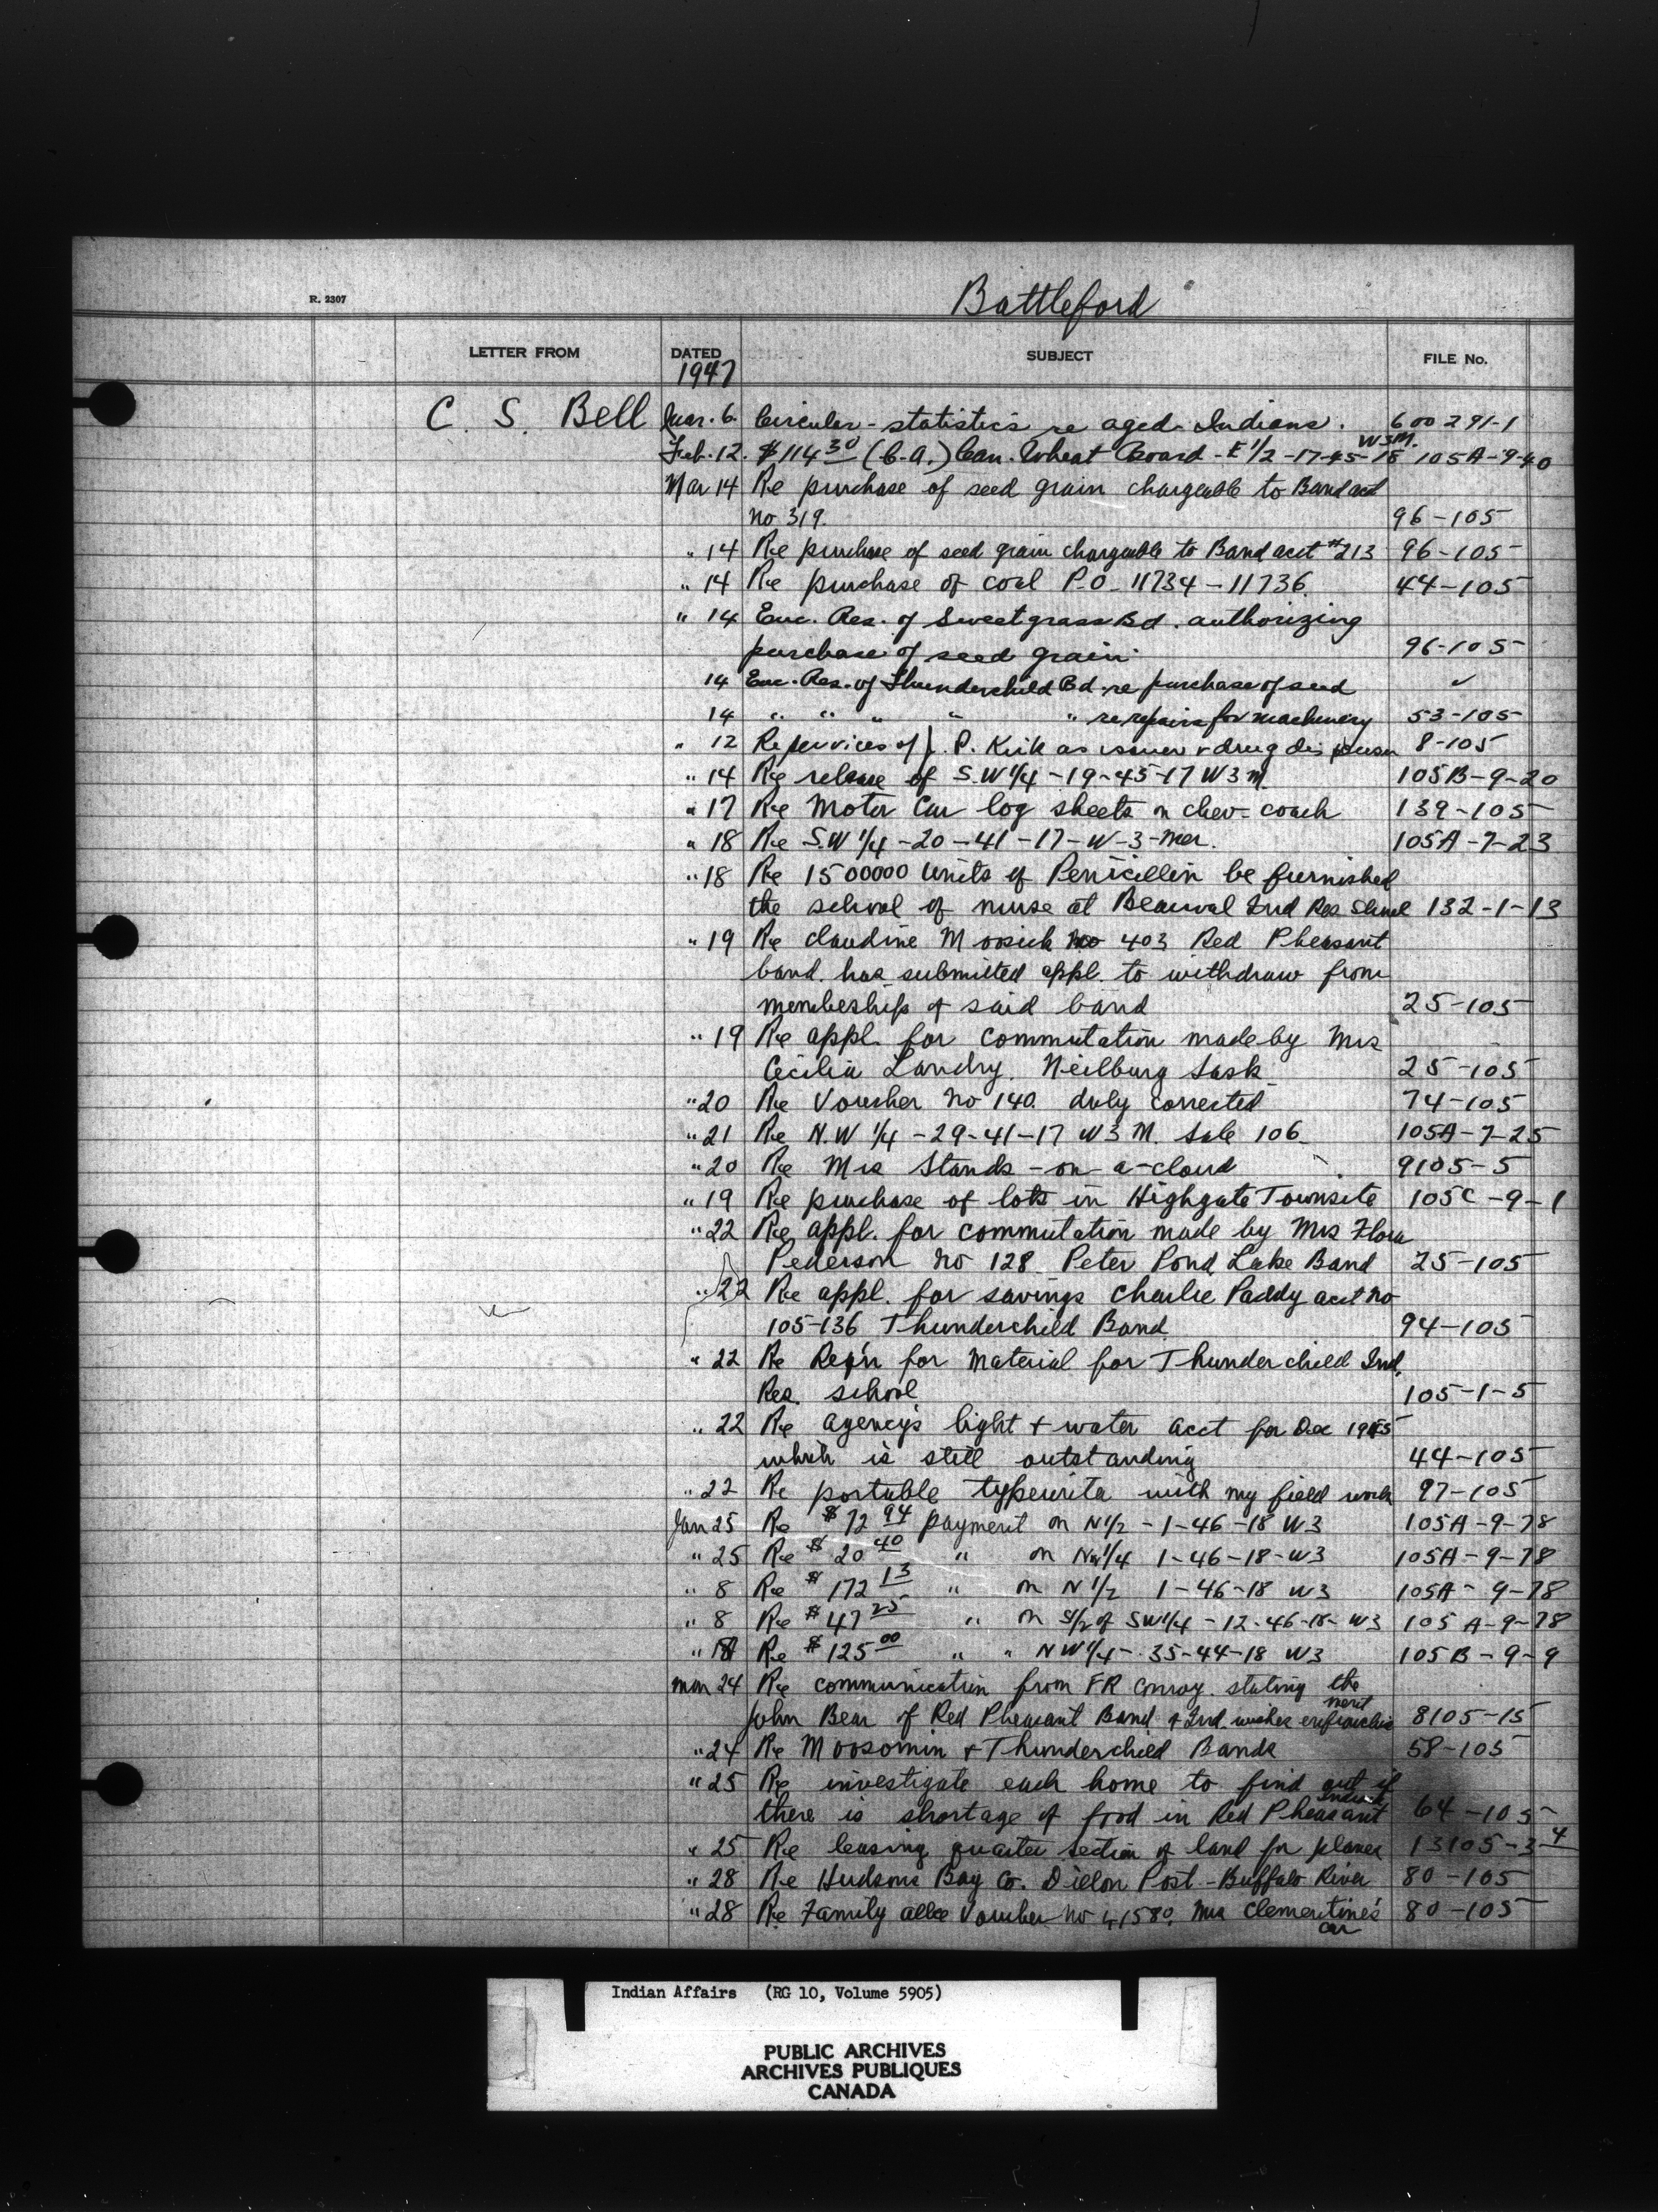 R. 2307
Battleford
LETTER FROM DATED SUBJECT FILE No.
1947
C. S. Bell Mar. 6. Circular - statistics re aged Indians. 600291-1
W3M.
Feb. 12. $114 30 (C.A.) Can. Wheat Board - E 1/2 -17-45-18 105A-9-40
Mar 14 Re purchase of seed grain chargeable to Band act
no 319. 96-105
" 14 Re purchase of seed grain chargeable to Band acct #213 96-105
" 14 Re purchase of coal P.O. 11734-11736. 44-105
" 14 Enc. Res. of Sweetgrass Bd. authorizing
purchase of seed grain. 96-105
14 Enc. Res. of Thunderchild Bd. re purchase of seed ✓
14 " " " " " re repairs for machinery 53-105
" 12 Re services of J. P. Kirk as issuer & drug dispenser 8-105
" 14 Re release of S.W 1/4 -19-45-17 W3M. 105B-9-20
" 17 Re Motor Car log sheets on chev-coach 139-105
" 18 Re S.W 1/4 -20-41-17-W-3-Mer. 105A-7-23
" 18 Re 1500000 units of Penicillin be furnished
the school of nurse at Beauval Ind Res School 132-1-13
" 19 Re Claudine Moosich no 403 Red Pheasant
band. has submitted appl. to withdraw from
membeship of said band 25-105
" 19 Re appl. for commutation made by Mrs
Cecilia Landry. Neilburg Sask 25-105
" 20 Re Voucher no 140. duly corrected 74-105
" 21 Re N.W 1/4 -29-41-17 W3M. Sale 106 105A-7-25
" 20 Re Mrs Stands-on-a-cloud 9105-5
" 19 Re purchase of lots in Highgate Townsite 105C-9-1
" 22 Re appl. for commutation made by Mrs Flora
Pederson no 128 Peter Pond Lake Band 25-105
" 22 Re appl. for savings Charlie Paddy acct no
105-136 Thunderchild Band. 94-105
" 22 Re Req'n for Material for Thunderchild Ind.
Res. school 105-1-5
" 22 Re agency's light + water acct for Dec 1945
which is still outstanding 44-105
" 22 Re portable typewrita with my field work 97-105
Jan 25 Re $72 94 payment on N1/2 -1-46-18 W3 105A-9-78
" 25 Re $20 40 " on NW1/4 1-46-18-W3 105A-9-78
" 8 Re $172 13 " on N 1/2 1-46-18 W3 105A-9-78
" 8 Re $47 25 " on S1/2 of SW1/4 -12-46-18-W3 105A-9-78
" Re $125 00 " " NW1/4-35-44-18 W3 105B-9-9
Mar 24 Re communication from FR Conroy. stating the
John Bear of Red Pheasant Band + Ind. wishes 8105-15
" 24 Re Moosomin + Thunderchild Bands 58-105
" 25 Re investigate each home to find out if
there is shortage of food in Red Pheasant 64-105
" 25 Re leasing quarter section of land for planes 13105-3-4
" 28 Re Hudsons Bay Co. Dillon Post - Buffalo River 80-105
" 28 Re Family allce Voucher no 41580. Mrs Clementine's 80-105
Indian Affairs (RG 10, Volume 5905)
PUBLIC ARCHIVES
ARCHIVES PUBLIQUES
CANADA